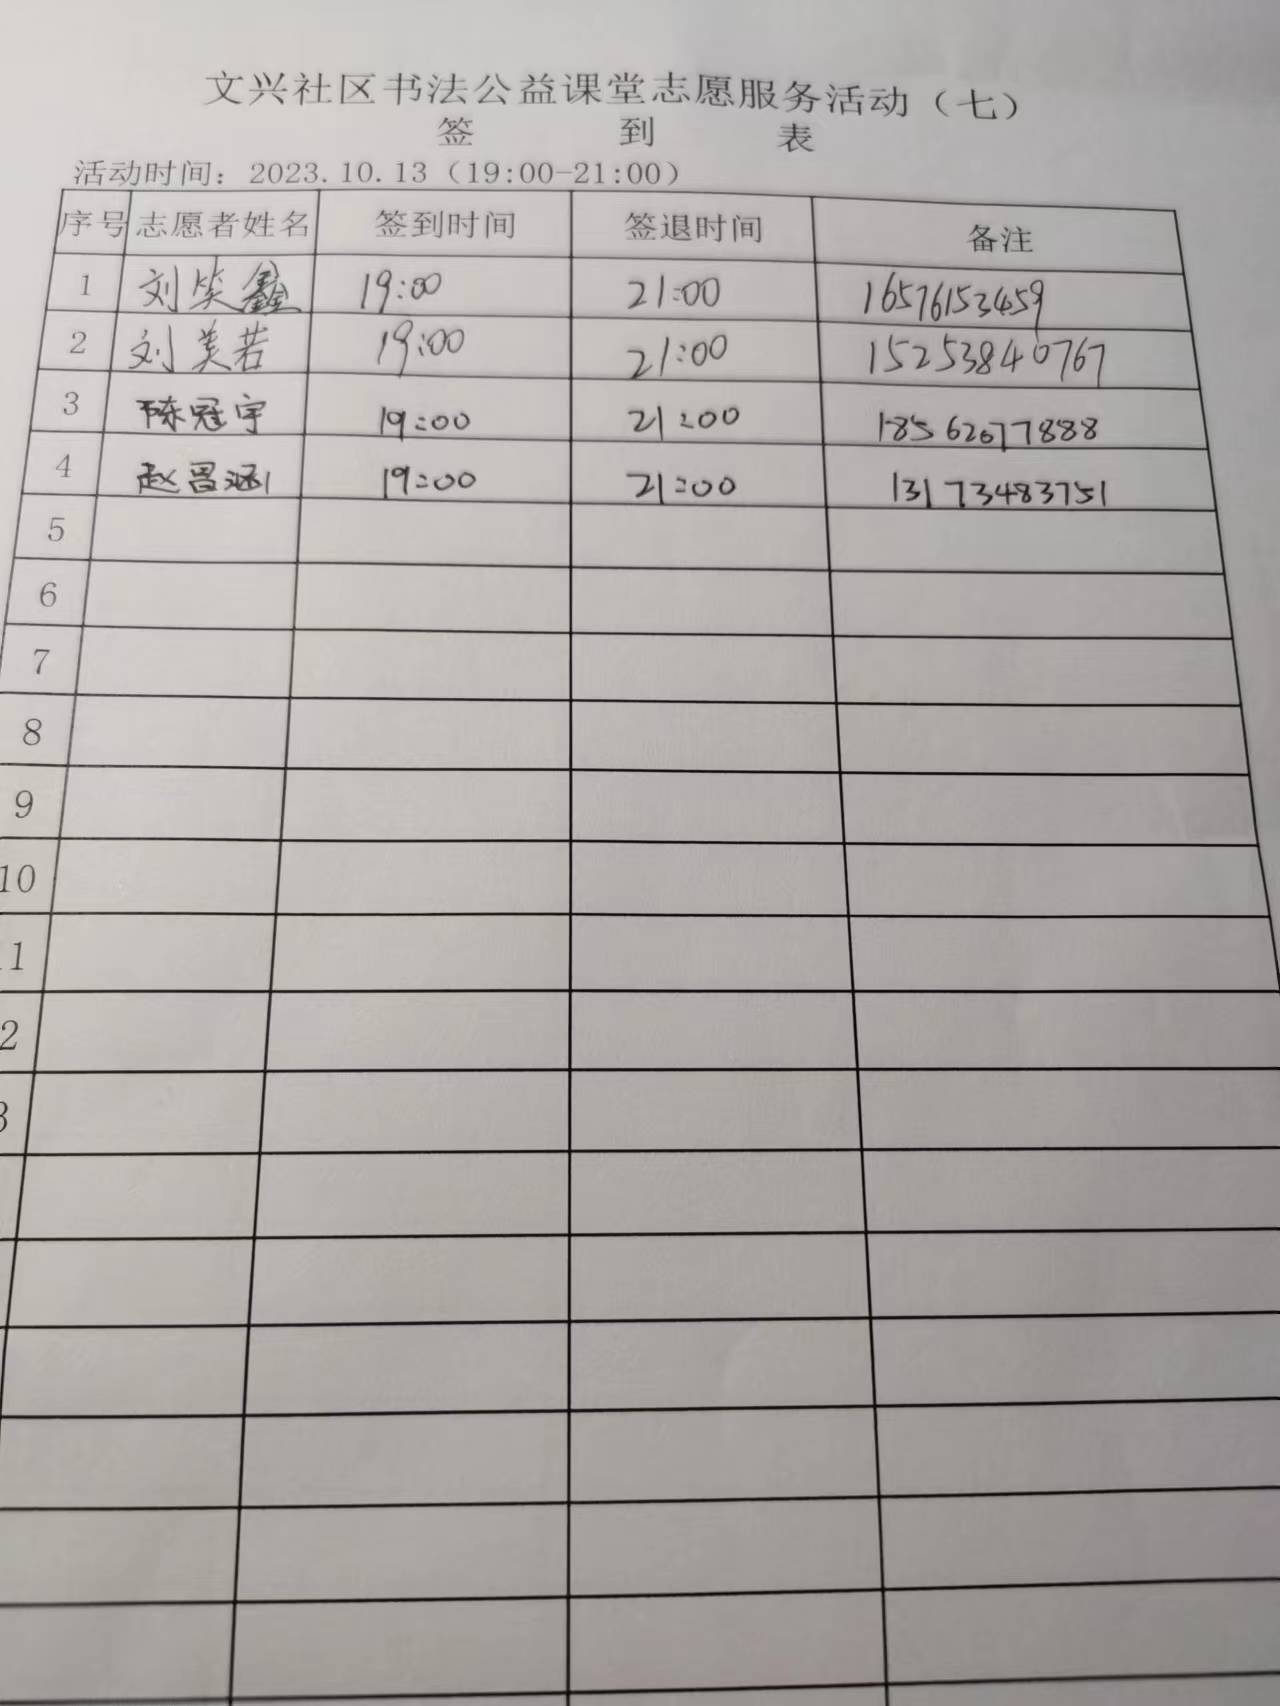 文兴社区书法公益课堂志愿服务活动（七）
签 到 表
活动时间：2023.10.13（19:00-21:00）
序号 志愿者姓名 签到时间 签退时间 备注
1 刘笑鑫 19:00 21:00 16576153459
2 刘美若 19:00 21:00 15253840767
3 陈冠宇 19:00 21:00 18562677888
4 赵昌涵 19:00 21:00 13173483751
5
6
7
8
9
10
11
2
3